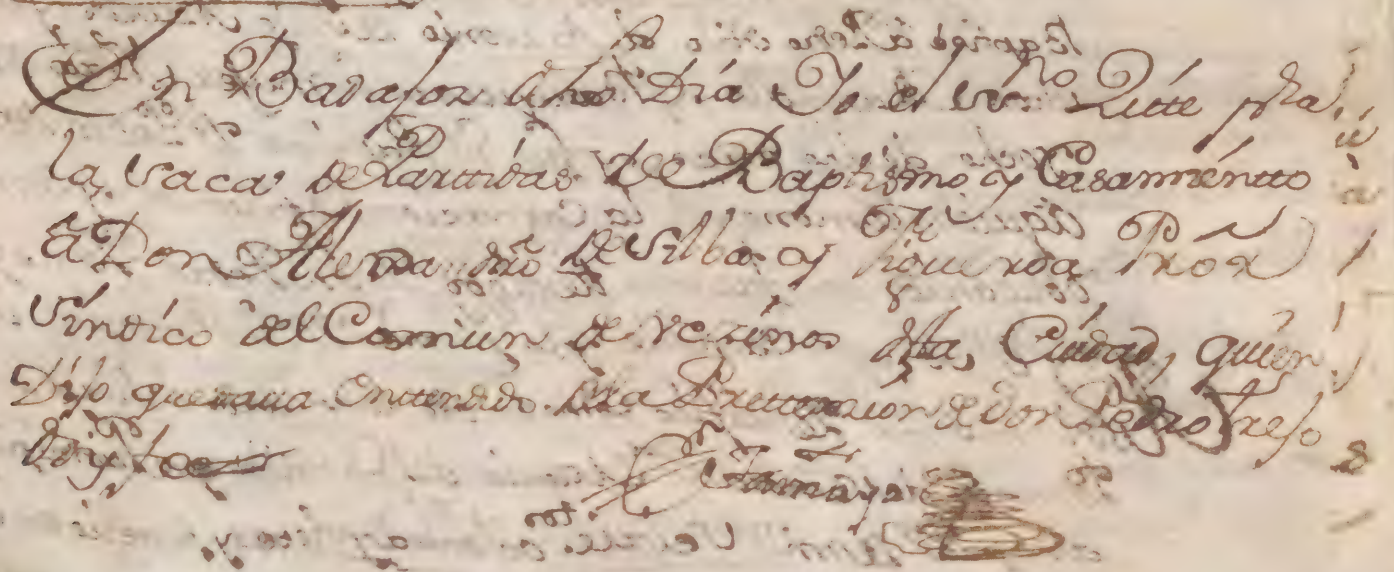 En Badajoz dho Dia Yo el ssno Zitte pra
la saca de Parttidas de Baptismo y Casamientto
a Don de Silba y Figueroa Pror
Sindico del Comun de vezinos desta Ciudad, quien
Dijo quedaua Enttendido de la Prettencion de Don Pedro Trejo
doy fee
Tamayo